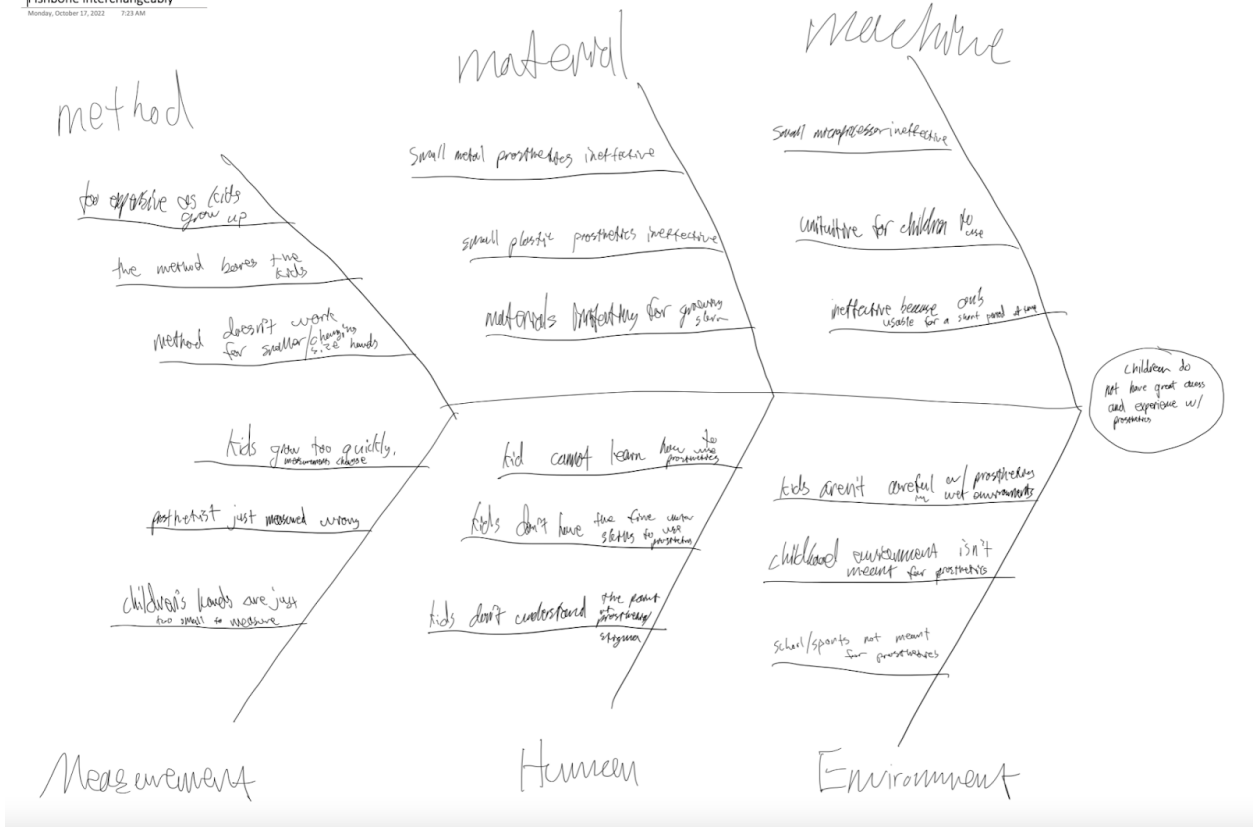 Fishbone Interchangeably
Monday, October 17, 2022 7:23 AM
method
too expensive as kids
grow up
the method bores the
kids
method doesn't work
for smaller/changing
size hands
material
small metal prosthetics ineffective
small plastic prosthetics ineffective
materials for growing
machine
small microprocessor ineffective
unituitive for children to
use
ineffective because only
usable for a short period of time
children do
not have great access
and experience w/
prosthetics
kids grow too quickly,
measurements change
prosthetist just measured wrong
children's hands are just
too small to measure
Measurement
kid cannot learn how to
use
prosthetics
kids don't have the fine motor
skills to use
prosthetics
kids don't understand the point
of
prosthetics/
stigma
Human
kids aren't careful w/ prosthetics
in wet environments
childhood environment isn't
meant for prosthetics
school/sports not meant
for prosthetics
Environment